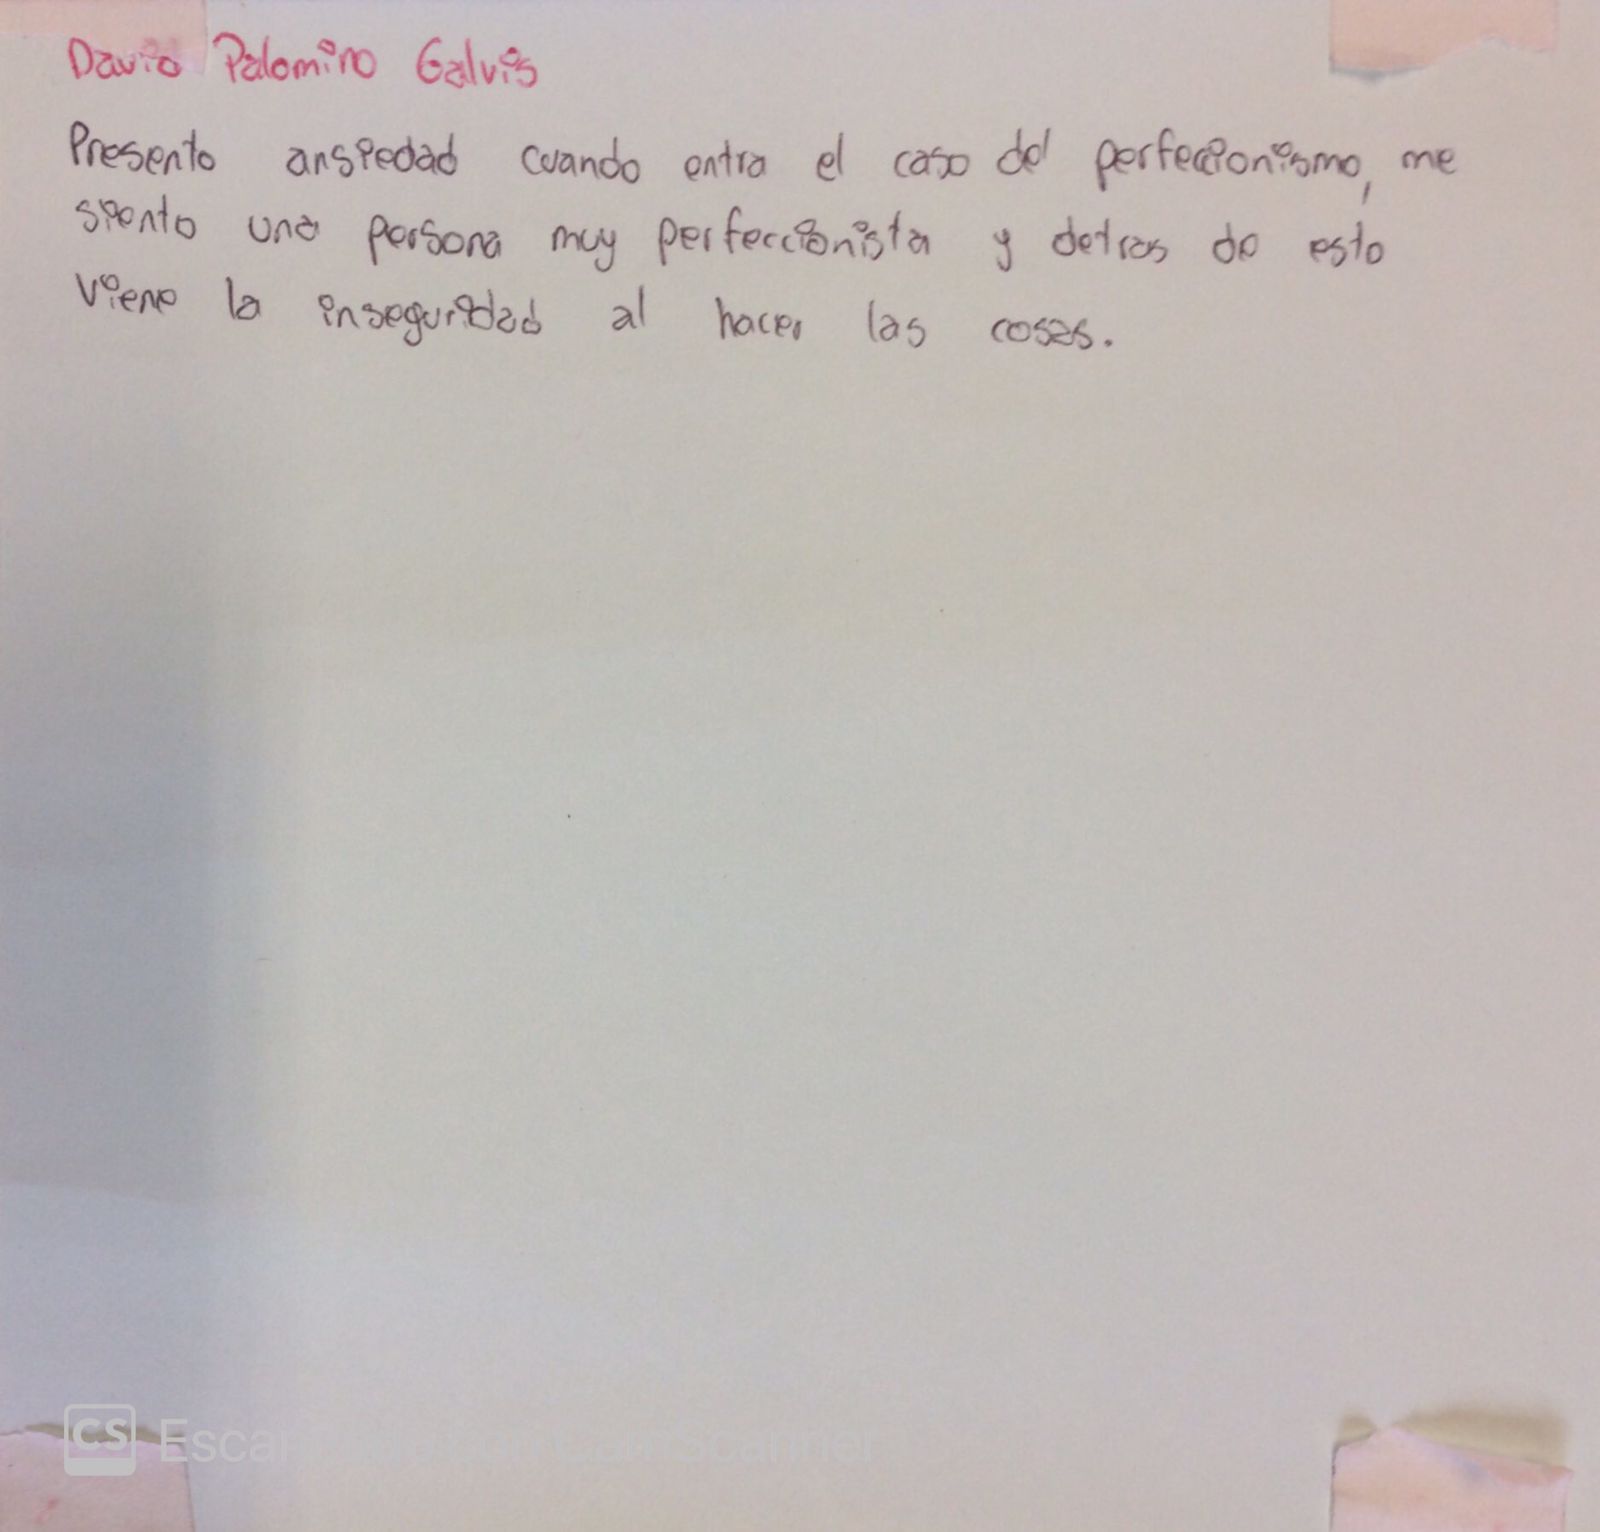 David Palomino Galvis
Presento ansiedad cuando entra el caso del perfeccionismo, me
siento una persona muy perfeccionista y detras de esto
viene la inseguridad al hacer las cosas.
CS Escaneado con CamScanner